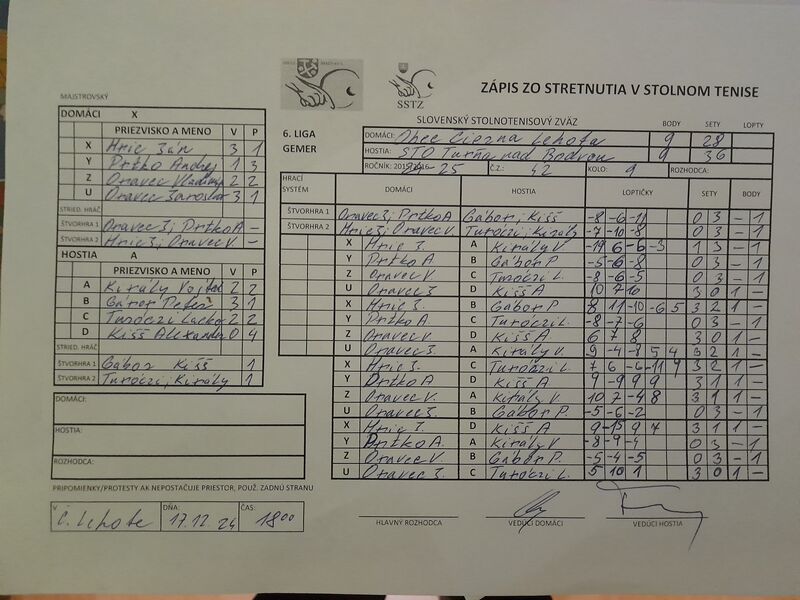 SSTZ
ZÁPIS ZO STRETNUTIA V STOLNOM TENISE
SLOVENSKÝ STOLNOTENISOVÝ ZVÄZ BODY SETY LOPTY
MAJSTROVSKÝ
DOMÁCI X
PRIEZVISKO A MENO V P
X Hric Ján 3 1
Y Prtko Andrej 1 3
Z Oravec Vladimír 2 2
U Oravec Jaroslav 3 1
STRIED. HRÁČ
ŠTVORHRA 1 Oravec J; Prtko A -
ŠTVORHRA 2 Hric J; Oravec V. -
HOSTIA A
PRIEZVISKO A MENO V P
A Király Vojtech 2 2
B Gábor Peter 3 1
C Turóczi Lacko 2 2
D Kišš Alexander 0 4
STRIED. HRÁČ
ŠTVORHRA 1 Gábor Kišš 1
ŠTVORHRA 2 Turóczi; Király 1
DOMÁCI:
HOSTIA:
ROZHODCA:
PRIPOMIENKY/PROTESTY AK NEPOSTAČUJE PRIESTOR, POUŽ. ZADNÚ STRANU
V Č. Lehote DŇA: 17.12.24 ČAS: 18 00
6. LIGA
GEMER
DOMÁCI: Obec Čierna Lehota 9 28
HOSTIA: STO Turňa nad Bodvou 9 36
ROČNÍK: 24-25 Č.Z.: 42 KOLO: 9 ROZHODCA:
HRACÍ SYSTÉM DOMÁCI HOSTIA LOPTIČKY SETY BODY
ŠTVORHRA 1 Oravec J; Prtko A Gábor; Kišš -8 -6 -11 0 3 - 1
ŠTVORHRA 2 Hric J; Oravec V. Turóczi; Király -7 -10 -8 0 3 - 1
X Hric J. A Király V. -19 6 -6 -3 1 3 - 1
Y Prtko A B Gábor P. -5 -6 -8 0 3 - 1
Z Oravec V. C Turóczi L. -8 -6 -5 0 3 - 1
U Oravec J D Kišš A 10 7 10 3 0 1 -
X Hric J. B Gábor P. 8 11 -10 -6 5 3 2 1 -
Y Prtko A. C Turóczi L. -8 -7 -6 0 3 - 1
Z Oravec V. D Kišš A 6 7 8 3 0 1 -
U Oravec J. A Király V. 9 -4 -8 5 4 3 2 1 -
X Hric J. C Turóczi L. 7 6 -6 -11 9 3 2 1 -
Y Prtko A D Kišš A 9 -9 9 9 3 1 1 -
Z Oravec V. A Király V 10 7 -4 8 3 1 1 -
U Oravec J. B Gábor P. -5 -6 -2 0 3 - 1
X Hric J. D Kišš A 9 -13 9 7 3 1 1 -
Y Prtko A. A Király V -8 -9 -4 0 3 - 1
Z Oravec V. B Gábor P. -5 -4 -5 0 3 - 1
U Oravec J. C Turóczi L. 5 10 1 3 0 1 -
HLAVNÝ ROZHODCA VEDÚCI DOMÁCI VEDÚCI HOSTIA